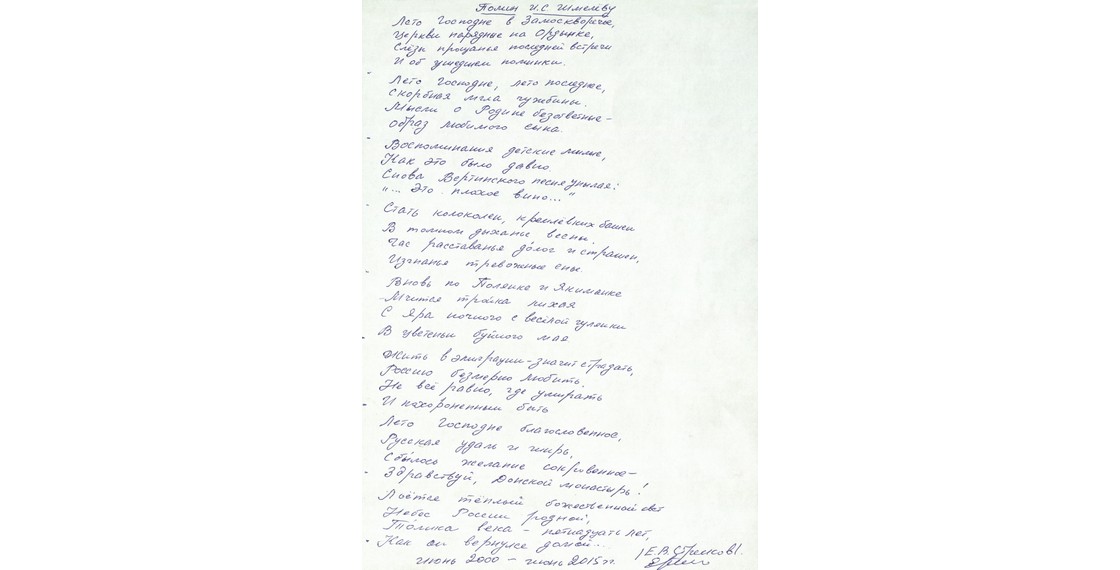 Полин И.С Шмелёву
Лето Господне в Замоскворечье,
Церкви нарядные на Ордынке,
Слёзы прощанья последней встречи
И об ушедшем поминки.
Лето Господне, лето последнее,
Скорбная мгла чужбины.
Мысли о Родине безответные –
Образ любимого сына.
Воспоминания детские милые,
Как это было давно.
Снова Вертинского песня унылая:
"... Это плохое вино..."
Стать колоколен, кремлёвских башен
В томном дыханье весны.
Час расставанья долог и страшен,
Изгнанья тревожные сны.
Вновь по Полянке и Якиманке
Мчится тройка лихая
С Яра ночного с весёлой гулянки
В цветеньи буйного мая
Жить в эмиграции – значит страдать,
Россию безмерно любить.
Не всё равно, где умирать
И похороненным быть
Лето Господне благословенное,
Русская удаль и ширь,
Сбылось желание сокровенное –
Здравствуй, Донской монастырь!
Льётся тёплый божественный свет
Небес России родной,
Толика века – пятнадцать лет,
Как он вернулся домой...
/Е.В. Стрилков/.
июнь 2000 – июнь 2015 гг.